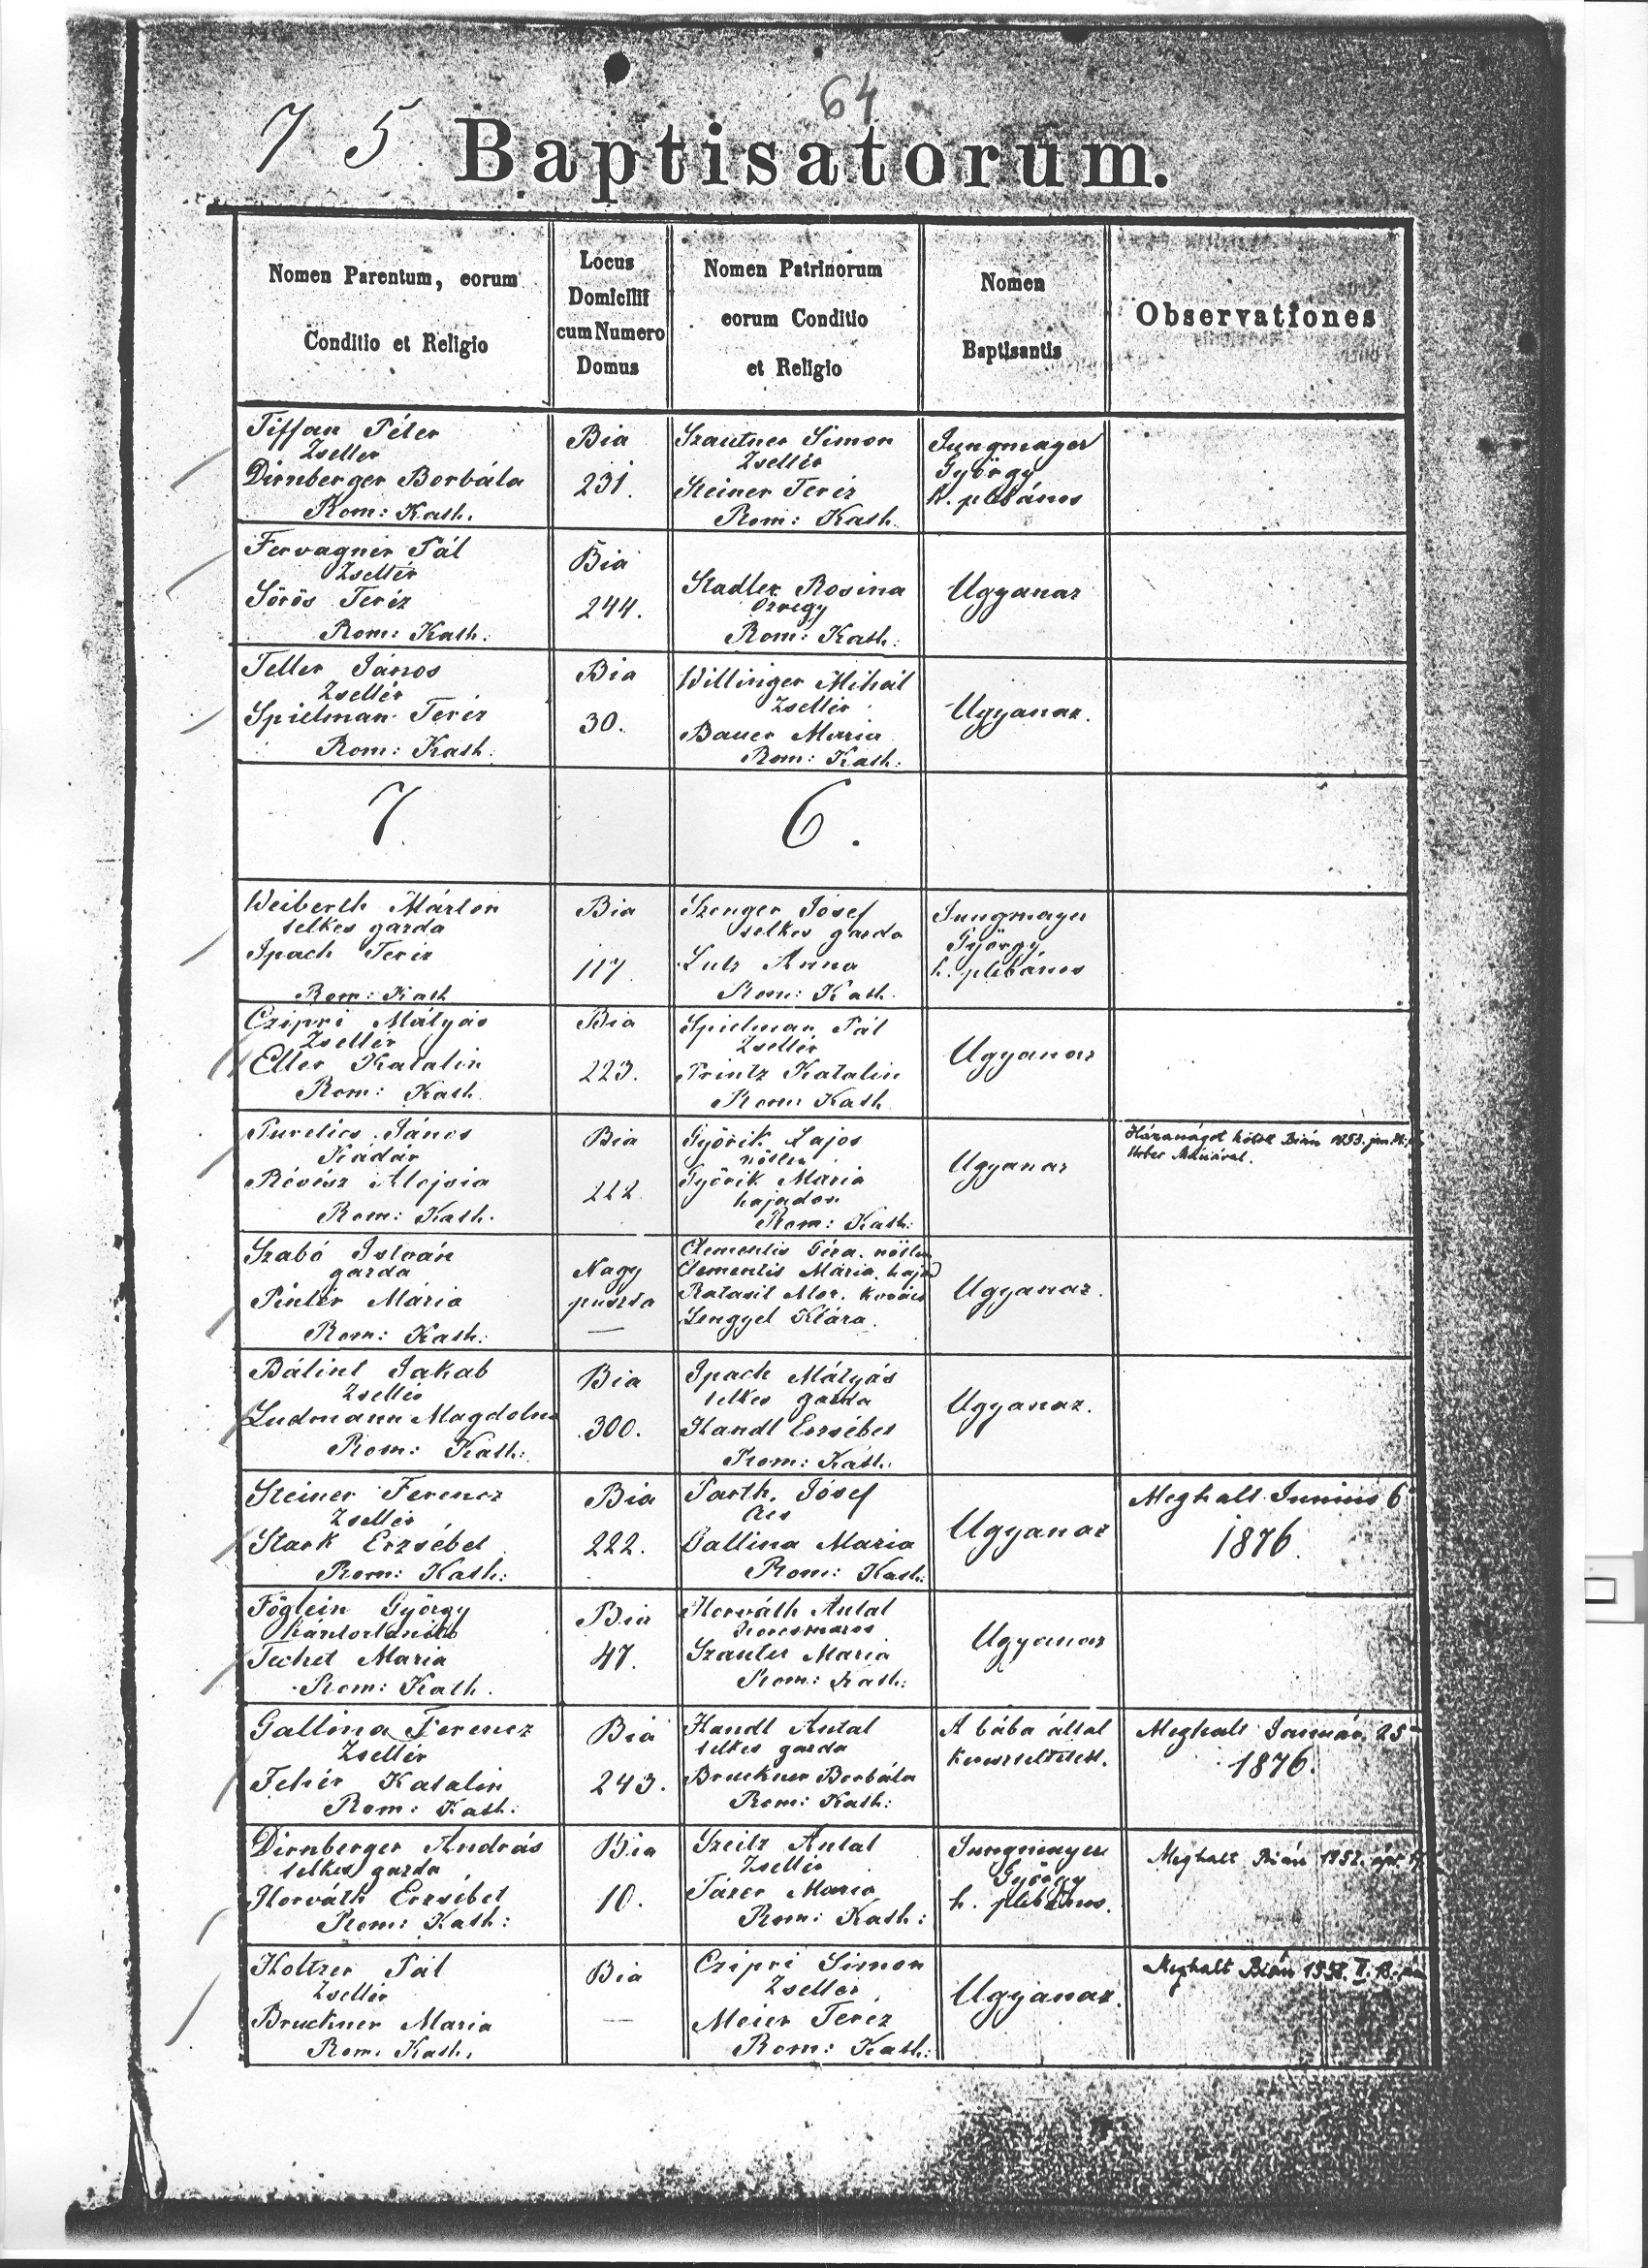 64
7 5. Baptisatorum.
Nomen Parentum, eorum
Conditio et Religio
Locus
Domicilii
cum Numero
Domus
Nomen Patrinorum
eorum Conditio
et Religio
Nomen
Baptisantis
Observationes
Tiffan Péter
Zsellér
Dirnberger Borbála
Rom: Kath.
Bia
231.
Szautner Simon
Zsellér
Steiner Teréz
Rom: Kath.
Jungmayer
György
h. plébános
Fervagner Pál
Zsellér
Sörös Teréz
Rom: Kath:
Bia
244.
Stadler Rosina
özvegy
Rom: Kath:
Ugyanaz
Teller János
Zsellér
Spielman Teréz
Rom: Kath:
Bia
30.
Willinger Mihál
Zsellér
Bauer Maria
Rom: Kath:
Ugyanaz.
7.
6.
Weiberth Márton
telkes gazda
Spach Teréz
Rom: Kath
Bia
117.
Szenger Jósef
telkes gazda
Lutz Anna
Rom: Kath.
Jungmayer
György
h. plébános
Czipri Mátyás
Zsellér
Eller Katalin
Rom: Kath.
Bia
223.
Spielman Pál
Zsellér
Printz Katalin
Rom: Kath
Ugyanaz
János
Kádár
Révész Alojsia
Rom: Kath.
Bia
222.
Györik Lajos
nőtlen
Györik Maria
hajadon
Rom: Kath:
Ugyanaz
Házasságot kötött Bián
Máriával.
Szabó István
gazda
Pintér Mária
Rom: Kath:
Nagy
puszta
—
Clementis Géza. nőtlen
Clementis Mária. hajad
Mor. kovács
Lengyel Klára.
Ugyanaz.
Bálint Jakab
Zsellér
Ludmann Magdolna
Rom: Kath:
Bia
300.
Spach Mátyás
telkes gazda
Handl Erzsébet
Rom: Kath:
Ugyanaz.
Steiner Ferencz
Zsellér
Stark Erzsébet
Rom: Kath:
Bia
222.
Parth. Jósef
Ács
Gallina Maria
Rom: Kath:
Ugyanaz
Meghalt Junius 6
1876.
Föglein György
kántortanító
Techet Maria
Rom: Kath.
Bia
47.
Horváth Antal
Szauter Maria
Rom: Kath:
Ugyanaz
Gallina Ferencz
Zsellér
Fehér Katalin
Rom: Kath:
Bia
243.
Handl Antal
telkes gazda
Bruckner Borbála
Rom: Kath:
A bába által
kereszteltetett.
Meghalt Január. 25
1876.
Dirnberger András
telkes gazda
Horváth Erzsébet
Rom: Kath:
Bia
10.
Szeitz Antal
Zsellér
Tázer Maria
Rom: Kath:
Jungmayer
György
h. plébános.
Meghalt Bián 1952. ápr.
Holtzer Pál
Zsellér
Bruckner Maria
Rom. Kath.
Bia
—
Czipri Simon
Zsellér
Meier Teréz
Rom: Kath:
Ugyanaz.
Meghalt Bián 1958. II. 13.